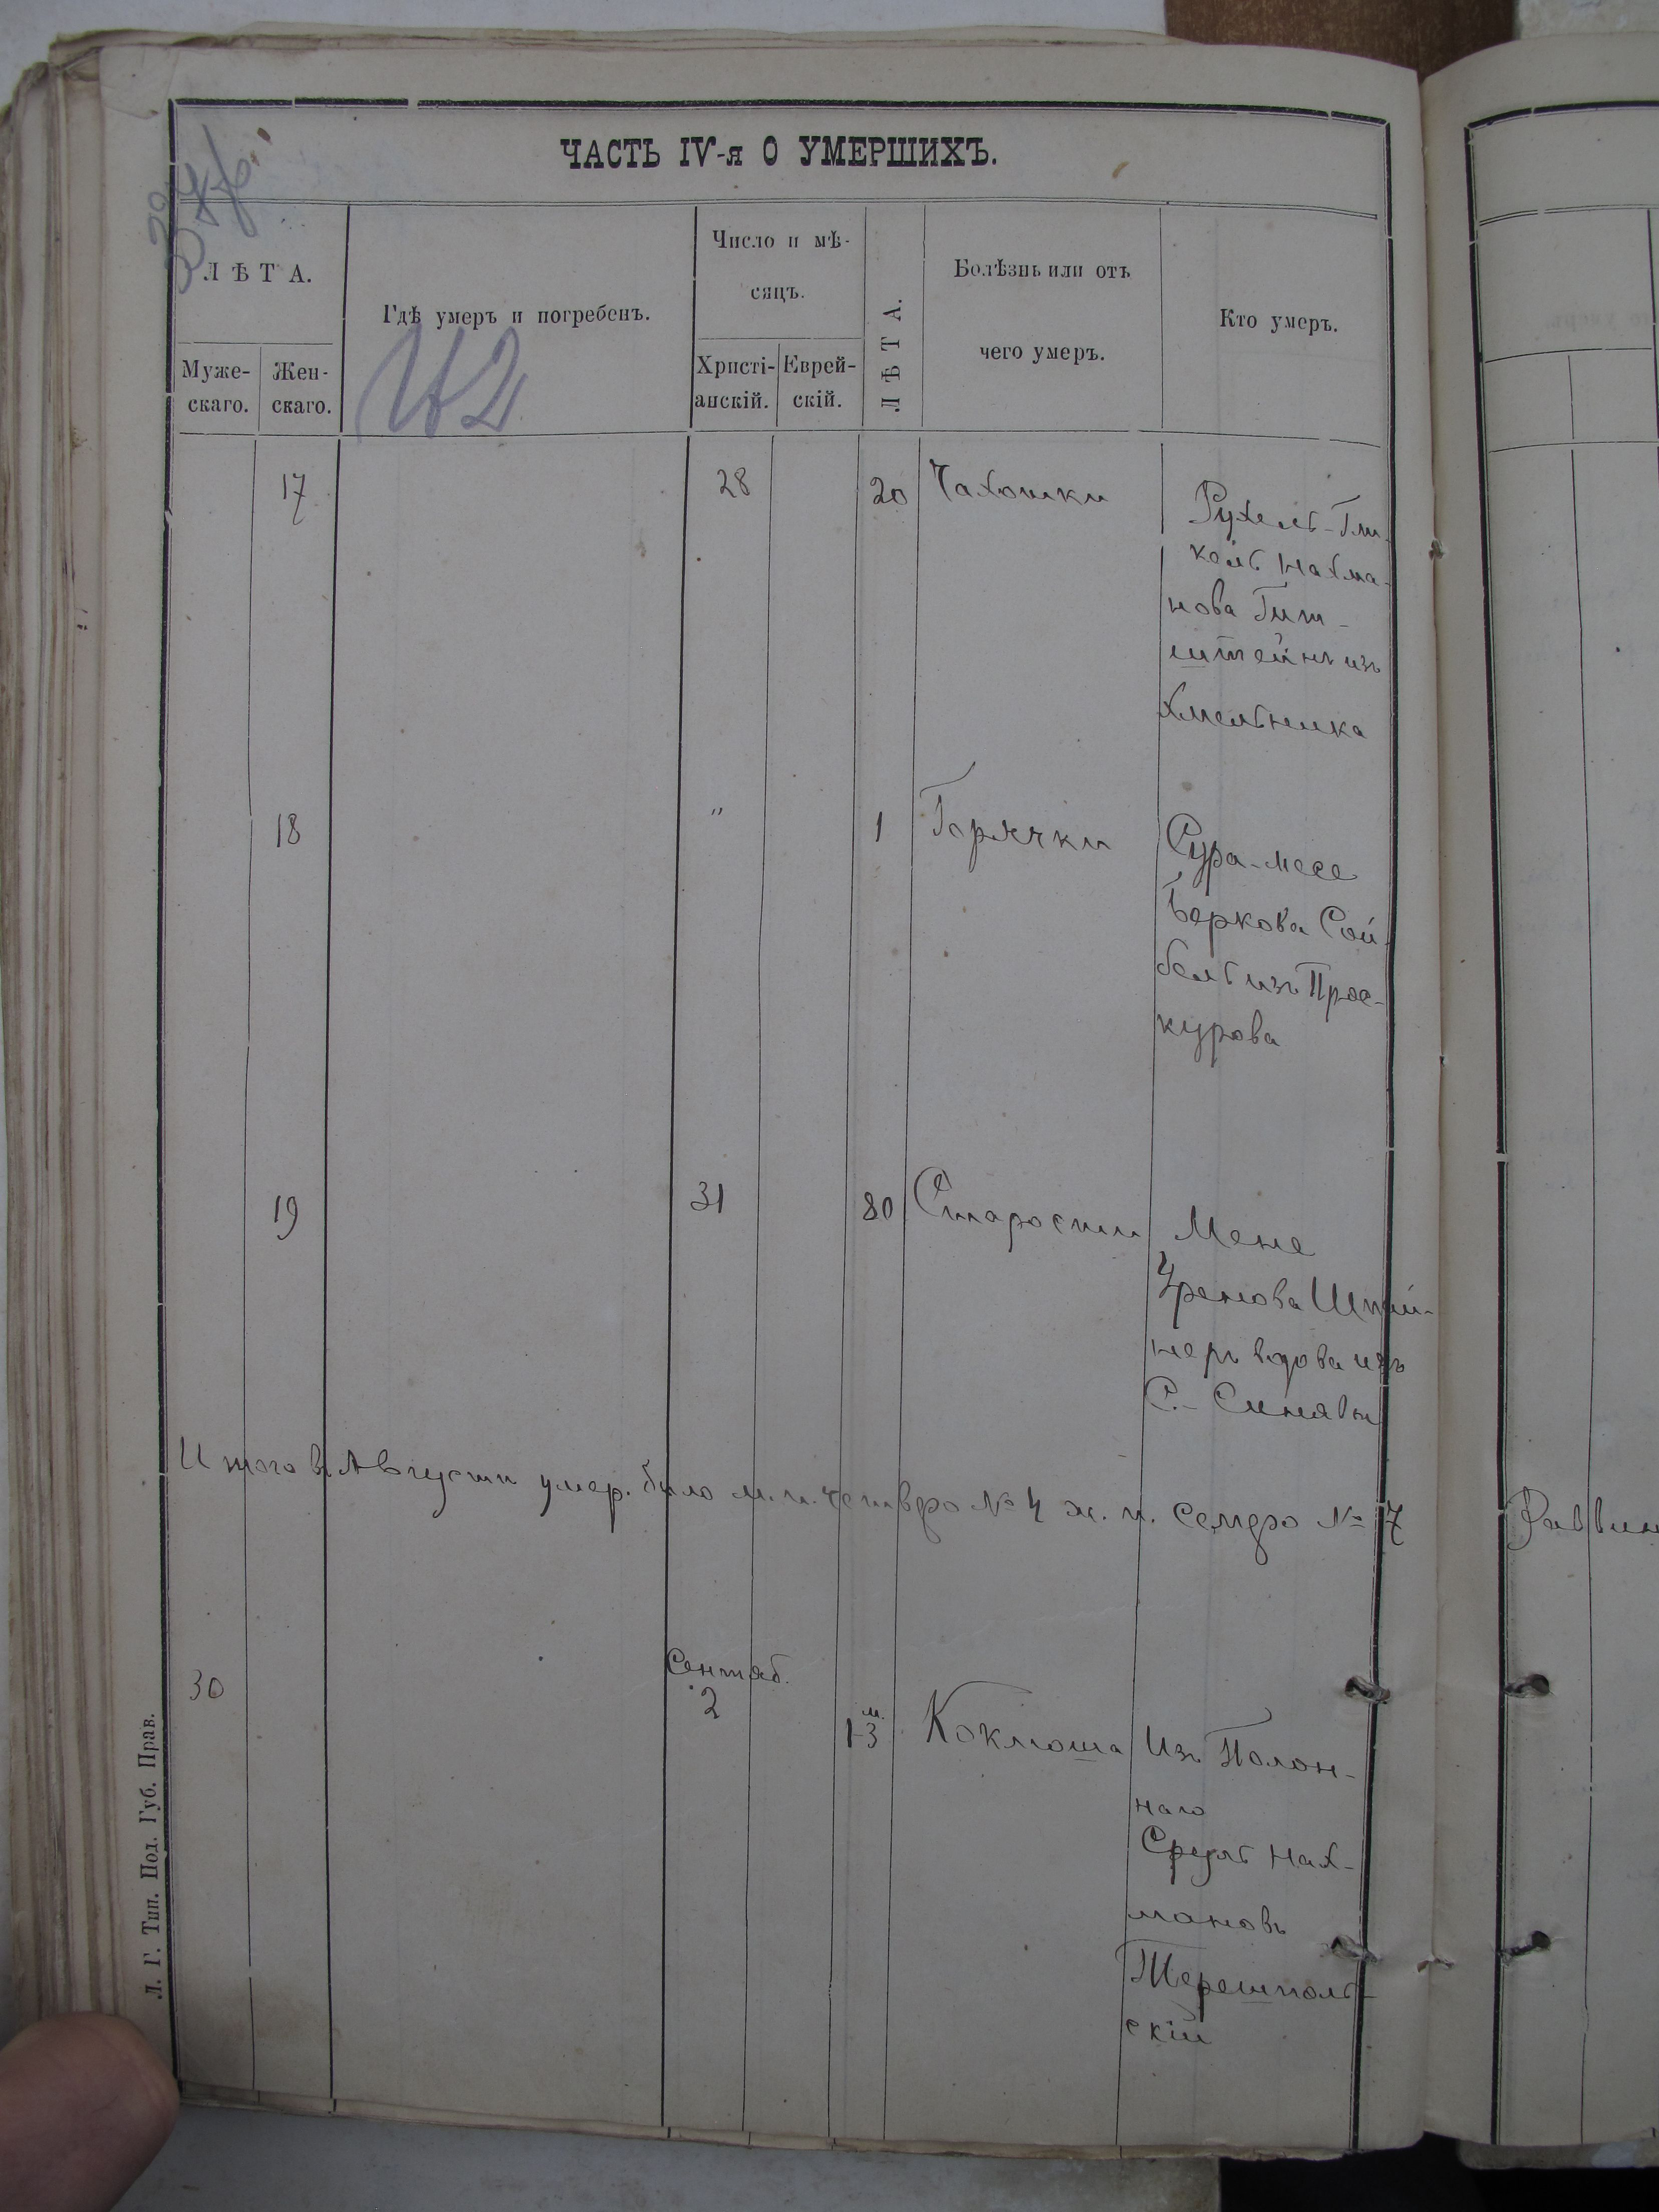 ЧАСТЬ IV-я О УМЕРШИХЪ.
ЛѢТА.
Муже-
скаго.
Жен-
скаго.
Гдѣ умеръ и погребенъ.
Число и мѣ-
сяцъ.
Христі-
анскій.
Еврей-
скій.
ЛѢТА.
Болѣзнь или отъ
чего умеръ.
Кто умеръ.
17 28 20 Чахотки
Рухель-Гит-
нахма-
нова Гит-
штейнъ изъ
Хмельника
18 " 1 Горячки
Сура-
Беркова Сой-
бель изъ Прос-
курова
19 31 80 Старости
Мене
неръ вдова изъ
С.-Синявы
Итого въ Августѣ умер. было м.п. четверо № 4 ж.п. семеро № 7
Раввин
30
Сентяб.
2
м.
1-3
Коклюша
Изъ Полон-
наго
Сруль Нах-
мановъ
Терешполь-
скій
Л. Г. Тип. Под. Губ. Прав.